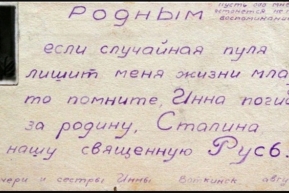 Родным
пусть это
останется
воспоминание
если случайная пуля
лишит меня жизни мла
то помните, Инна поги
за родину, Сталина
нашу священную Русь.
чери и сестры Инны. Воткинск август